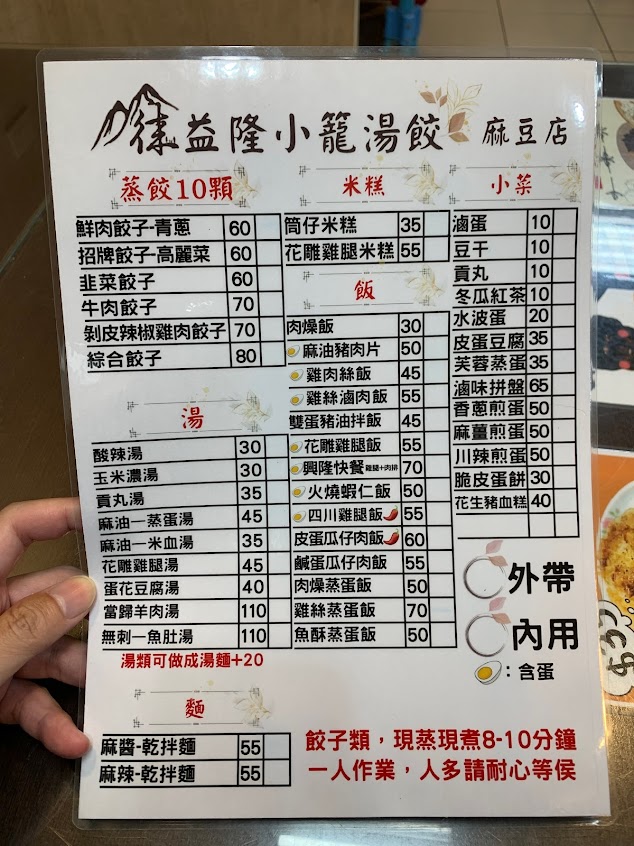 徐益隆小籠湯餃 麻豆店
蒸餃10顆
鮮肉餃子-青蔥 60
招牌餃子-高麗菜 60
韭菜餃子 60
牛肉餃子 70
剝皮辣椒雞肉餃子 70
綜合餃子 80
湯
酸辣湯 30
玉米濃湯 30
貢丸湯 35
麻油—蒸蛋湯 45
麻油—米血湯 35
花雕雞腿湯 45
蛋花豆腐湯 40
當歸羊肉湯 110
無刺—魚肚湯 110
湯類可做成湯麵+20
麵
麻醬-乾拌麵 55
麻辣-乾拌麵 55
米糕
筒仔米糕 35
花雕雞腿米糕 55
飯
肉燥飯 30
麻油豬肉片 50
雞肉絲飯 45
雞絲滷肉飯 55
雙蛋豬油拌飯 45
花雕雞腿飯 55
興隆快餐 雞腿+肉排 70
火燒蝦仁飯 50
四川雞腿飯 55
皮蛋瓜仔肉飯 60
鹹蛋瓜仔肉飯 55
肉燥蒸蛋飯 50
雞絲蒸蛋飯 70
魚酥蒸蛋飯 50
小菜
滷蛋 10
豆干 10
貢丸 10
冬瓜紅茶 10
水波蛋 20
皮蛋豆腐 35
芙蓉蒸蛋 35
滷味拼盤 65
香蔥煎蛋 50
麻薑煎蛋 50
川辣煎蛋 50
脆皮蛋餅 30
花生豬血糕 40
外帶
內用
：含蛋
餃子類，現蒸現煮8-10分鐘
一人作業，人多請耐心等侯